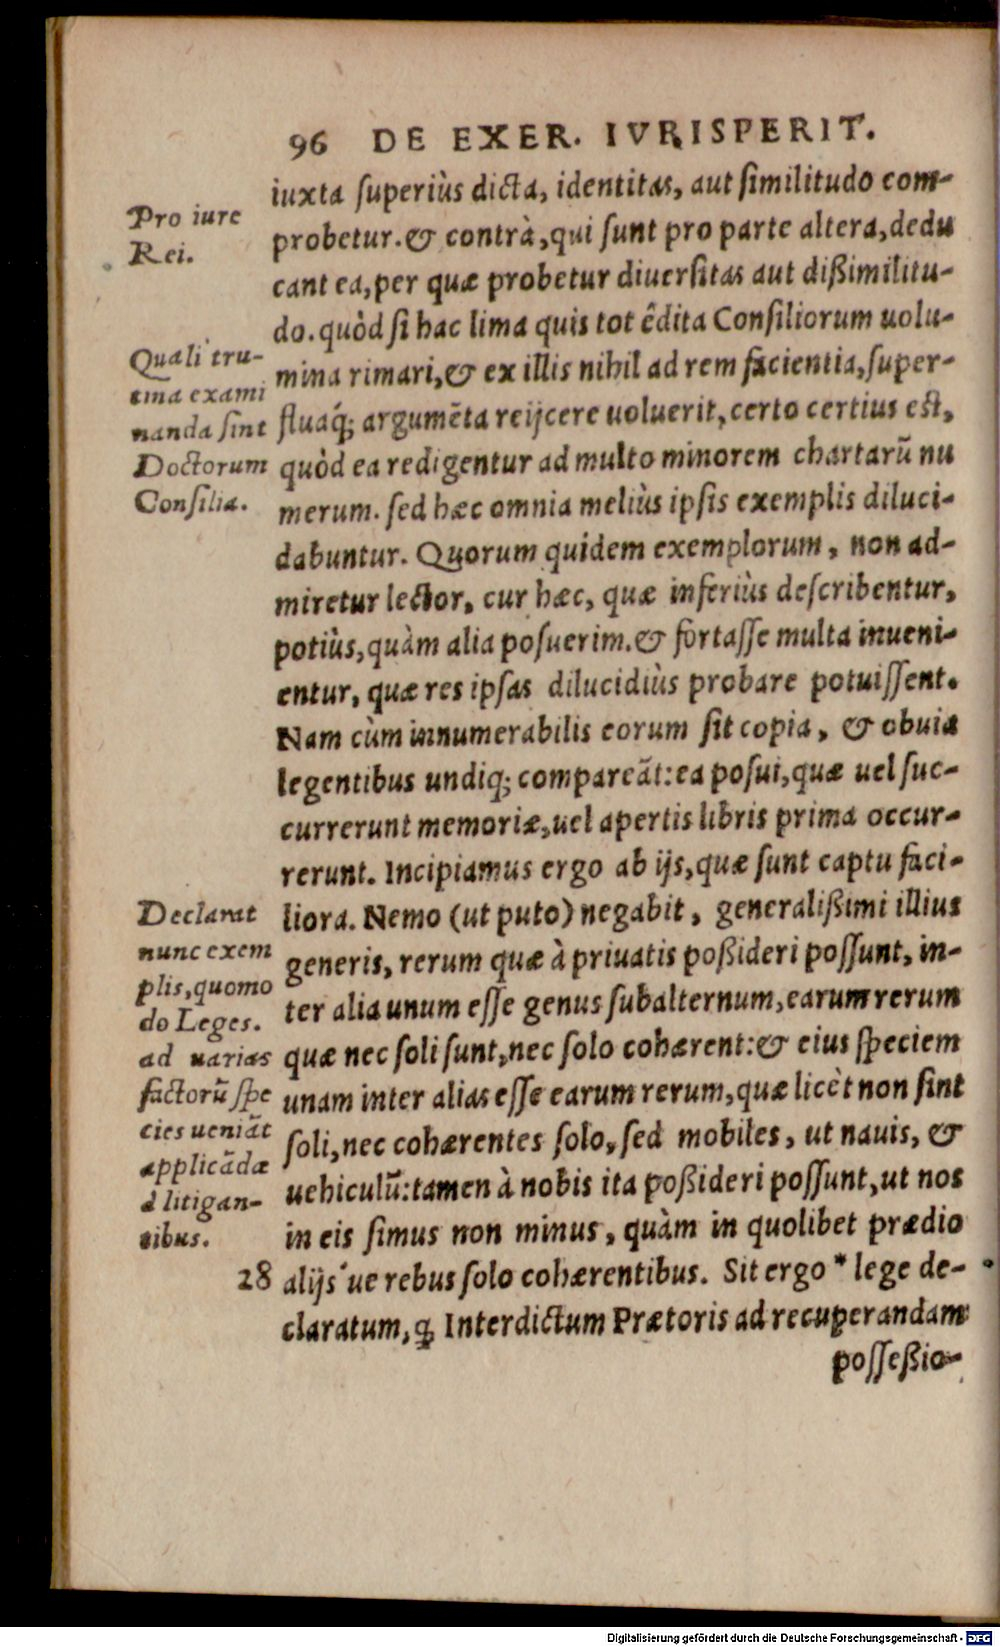 96 DE EXER. IVRISPERIT.
iuxta ſuperiùs dicta, identitas, aut ſimilitudo com-
probetur. & contrà, qui ſunt pro parte altera, dedu
cant ea, per quæ probetur diuerſitas aut dißimilitu-
do. quòd ſi hac lima quis tot ędita Conſiliorum uolu-
mina rimari, & ex illis nihil ad rem facientia, ſuper-
fluaq́; argumẽta reijcere uoluerit, certo certius eſt,
quòd ea redigentur ad multo minorem chartarũ nu
merum. ſed hæc omnia meliùs ipſis exemplis diluci-
dabuntur. Quorum quidem exemplorum, non ad-
miretur lector, cur hæc, quæ inferiùs deſcribentur,
potiùs, quàm alia poſuerim. & fortaſſe multa inueni-
entur, quæ res ipſas dilucidiùs probare potuiſſent.
Nam cùm innumerabilis eorum ſit copia, & obuia
legentibus undiq; compareãt: ea poſui, quæ uel ſuc-
currerunt memoriæ, uel apertis libris prima occur-
rerunt. Incipiamus ergo ab ijs, quæ ſunt captu faci-
liora. Nemo (ut puto) negabit, generalißimi illius
generis, rerum quæ à priuatis poßideri poſſunt, in-
ter alia unum eſſe genus ſubalternum, earum rerum
quæ nec ſoli ſunt, nec ſolo cohærent: & eius ſpeciem
unam inter alias eſſe earum rerum, quæ licèt non ſint
ſoli, nec cohærentes ſolo, ſed mobiles, ut nauis, &
uehiculũ: tamen à nobis ita poßideri poſſunt, ut nos
in eis ſimus non minus, quàm in quolibet prædio
28 alijs'ue rebus ſolo cohærentibus. Sit ergo * lege de-
claratum, ꝗ Interdictum Prætoris ad recuperandam
poſſeßio-
Pro iure
Rei.
Quali tru-
tina exami
nanda ſint
Doctorum
Conſilia.
Declarat
nunc exem
plis, quomo
do Leges.
ad uarias
factorũ ſpe
cies ueniãt
applicãdæ
à litigan-
tibus.
Digitalisierung gefördert durch die Deutsche Forschungsgemeinschaft - DFG